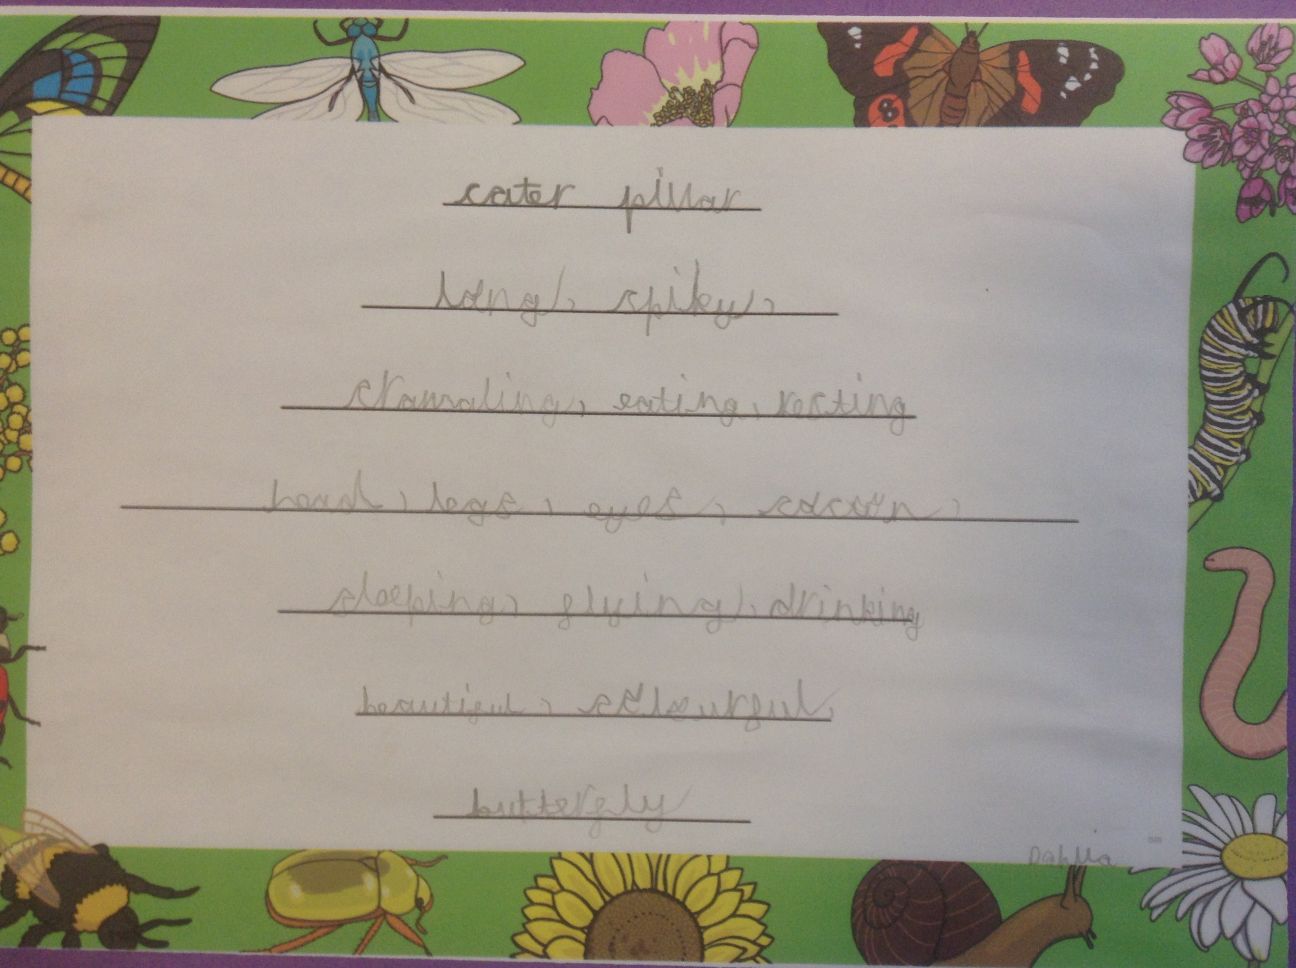 cater pillar
long, spiky,
crawling, eating, resting
legs, eyes, cocoon,
sleeping, flying, drinking
beautiful, colourful,
butterfly